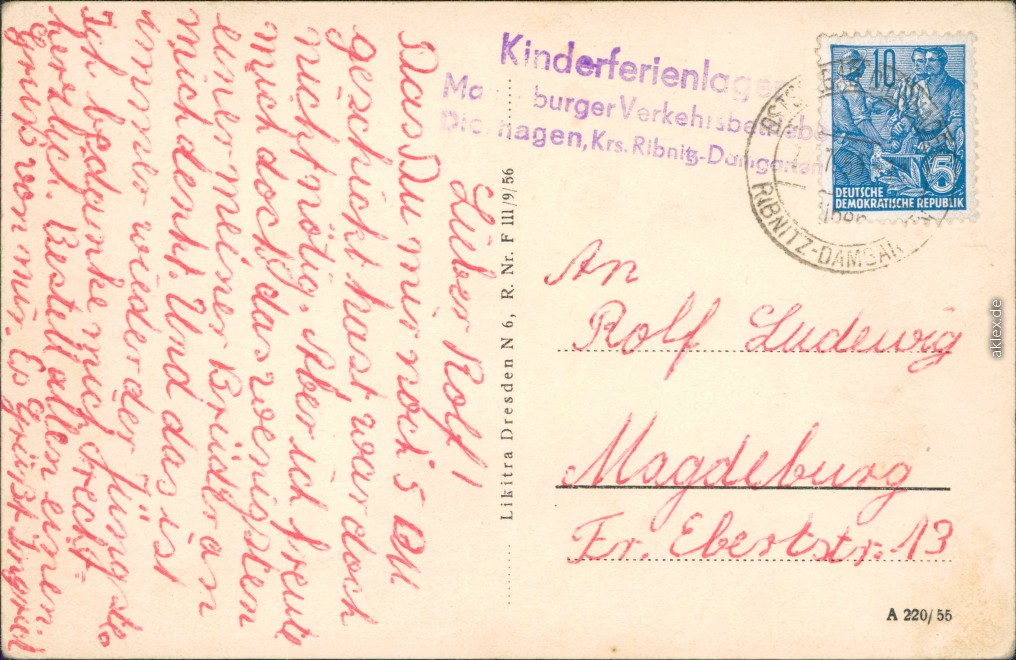 Lieber Rolf!
Das Du mir noch 5 DM
geschickt hast war doch
nicht nötig. Aber ich freue
mich doch das wenigsten
einer meiner Brüder an
mich denkt. Und das ist
immer wieder der Jüngste.
Ich bedanke mich recht
herzlich. Bestell allen einen
Gruß von mir. Es grüßt Ingrid
Likitra Dresden N 6, R. Nr. F III/9/56
Kinderferienlager
burger Verkehrsbetriebe
hagen, Krs. Ribnitz-Damgarten
10
5
DEUTSCHE
DEMOKRATISCHE REPUBLIK
RIBNITZ-DAMGAR
An
Rolf Ludewig
Magdeburg
Fr. Ebertstr. 13
A 220/55
aklex.de